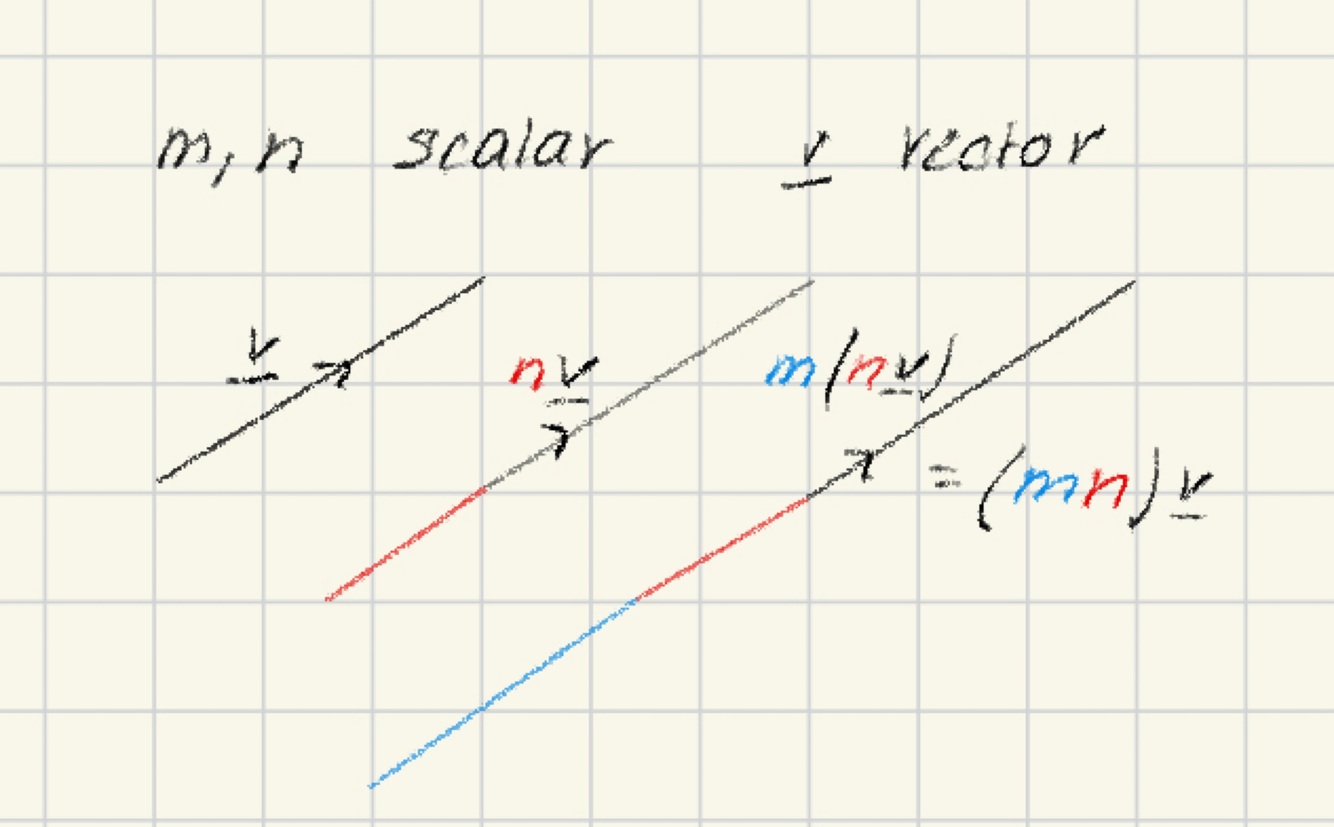 m, n scalar v vector
v
nv
m(nv)
= (mn) v